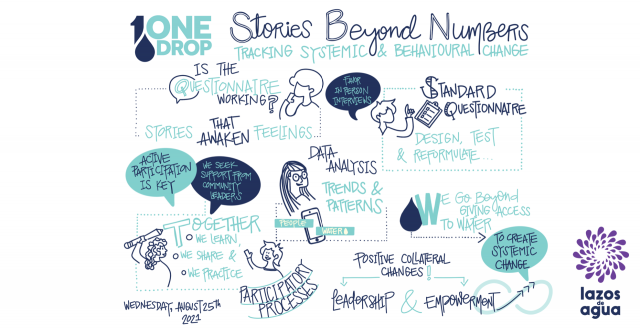 1 ONE
DROP
Stories Beyond Numbers
TRACKING SYSTEMIC & BEHAVIOURAL CHANGE
IS THE
QUESTIONNAIRE
WORKING?
FAVOR
IN PERSON
INTERVIEWS
STANDARD
QUESTIONNAIRE
DESIGN, TEST
& REFORMULATE....
STORIES THAT
AWAKEN FEELINGS
ACTIVE
PARTICIPATION
IS KEY
WE SEEK
SUPPORT FROM
COMMUNITY
LEADERS
DATA
ANALYSIS
TRENDS &
PATTERNS
PEOPLE
WATER
WE GO BEYOND
GIVING ACCESS
TO WATER
TO CREATE
SYSTEMIC
CHANGE
TOGETHER
WE LEARN,
WE SHARE &
WE PRACTICE
PARTICIPATORY
PROCESSES
POSITIVE COLLATERAL
CHANGES!
LEADERSHIP & EMPOWERMENT
WEDNESDAY, AUGUST 25TH
2021
lazos
de
agua